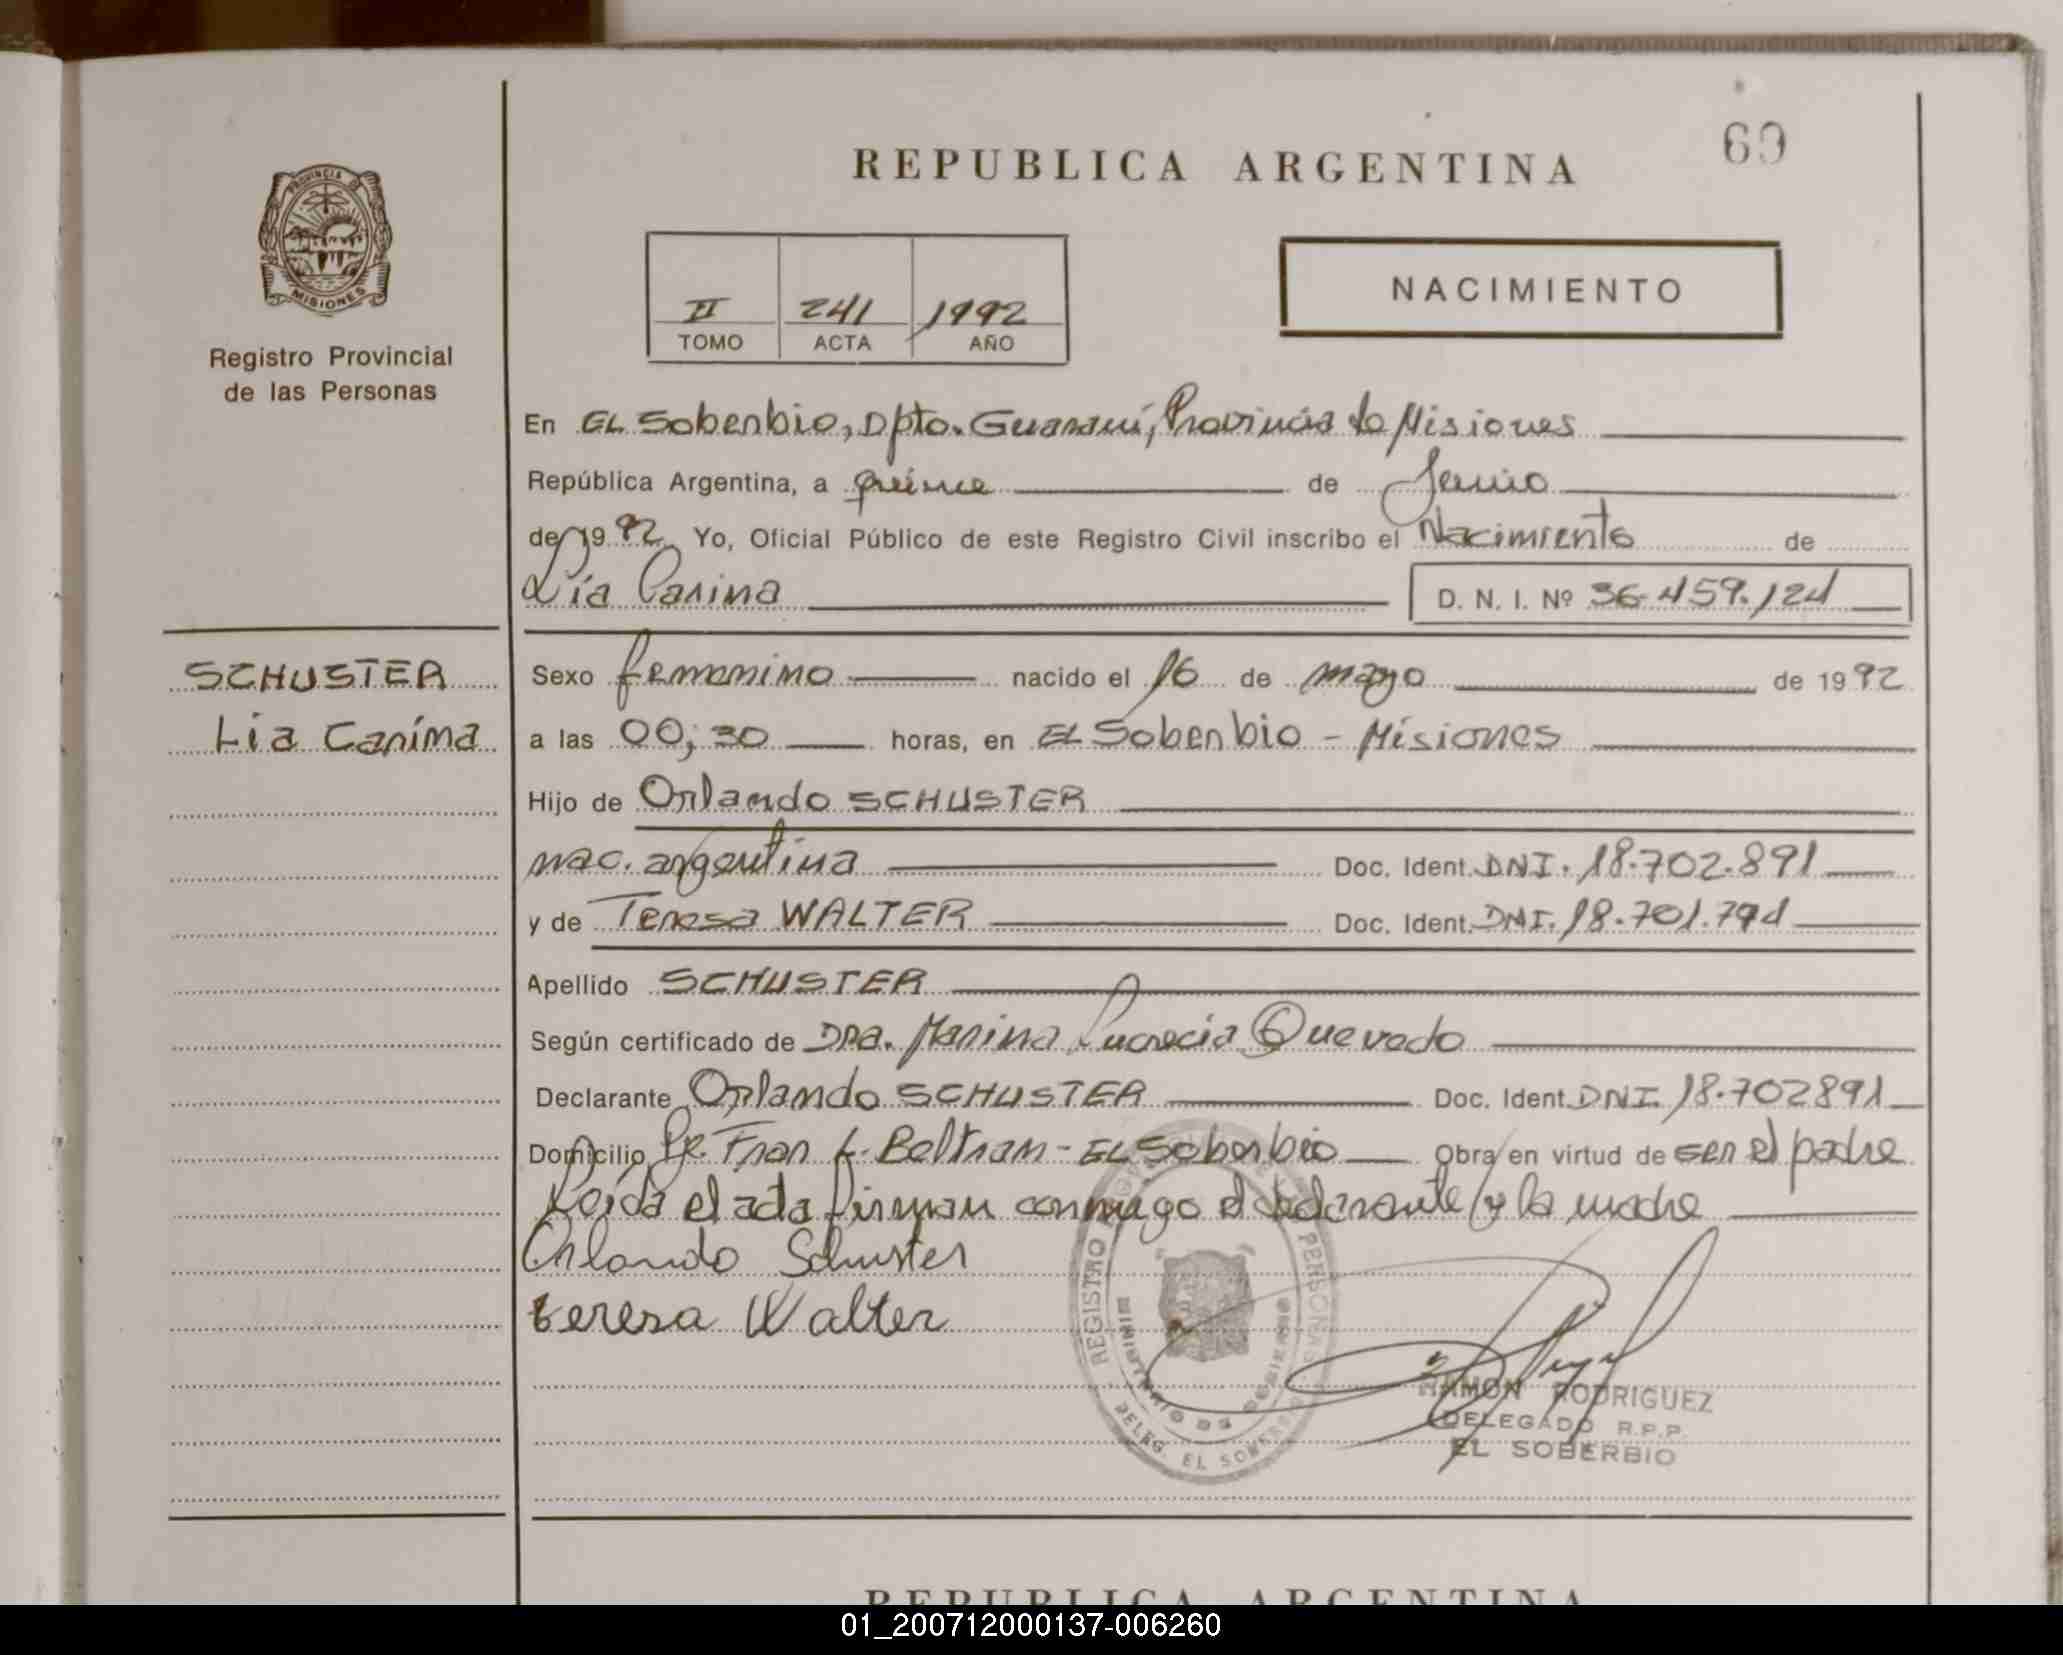 REPUBLICA ARGENTINA
69
PROVINCIA DE
MISIONES
Registro Provincial
de las Personas
II 241 1992
TOMO ACTA AÑO
NACIMIENTO
En EL Soberbio, Dpto. Guaraní, Provincia de Misiones
República Argentina, a quince de Junio
de 1992 Yo, Oficial Público de este Registro Civil inscribo el Nacimiento de
Lía Carina D. N. I. Nº 36.459.124
SCHUSTER
Lia Carina
Sexo femenino nacido el 16 de mayo de 1992
a las 00,30 horas, en EL Soberbio - Misiones
Hijo de Orlando SCHUSTER
nac. argentina Doc. Ident. DNI. 18.702.891
y de Teresa WALTER Doc. Ident. DNI. 18.701.794
Apellido SCHUSTER
Según certificado de Dra. Marina Lucrecia Quevedo
Declarante Orlando SCHUSTER Doc. Ident. DNI. 18.702891
Domicilio Pje. Fran L. Beltram - EL Soberbio Obra en virtud de ser el padre
Leída el acta firman conmigo el declarante y la madre
Orlando Schuster
teresa Walter
REGISTRO PERSONAS
MINISTERIO DE GOBIERNO
DELEG. EL SOBERBIO
RAMON RODRIGUEZ
DELEGADO R.P.P.
EL SOBERBIO
REPUBLICA ARGENTINA
01_200712000137-006260